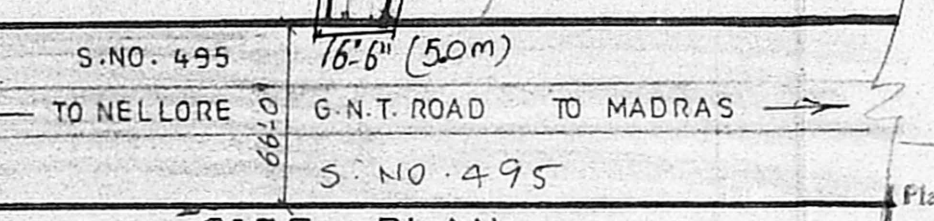 S.NO. 495
16'-6" (5.0m)
TO NELLORE
66'-0"
G.N.T. ROAD
TO MADRAS
S. NO. 495
PLAN
Pla